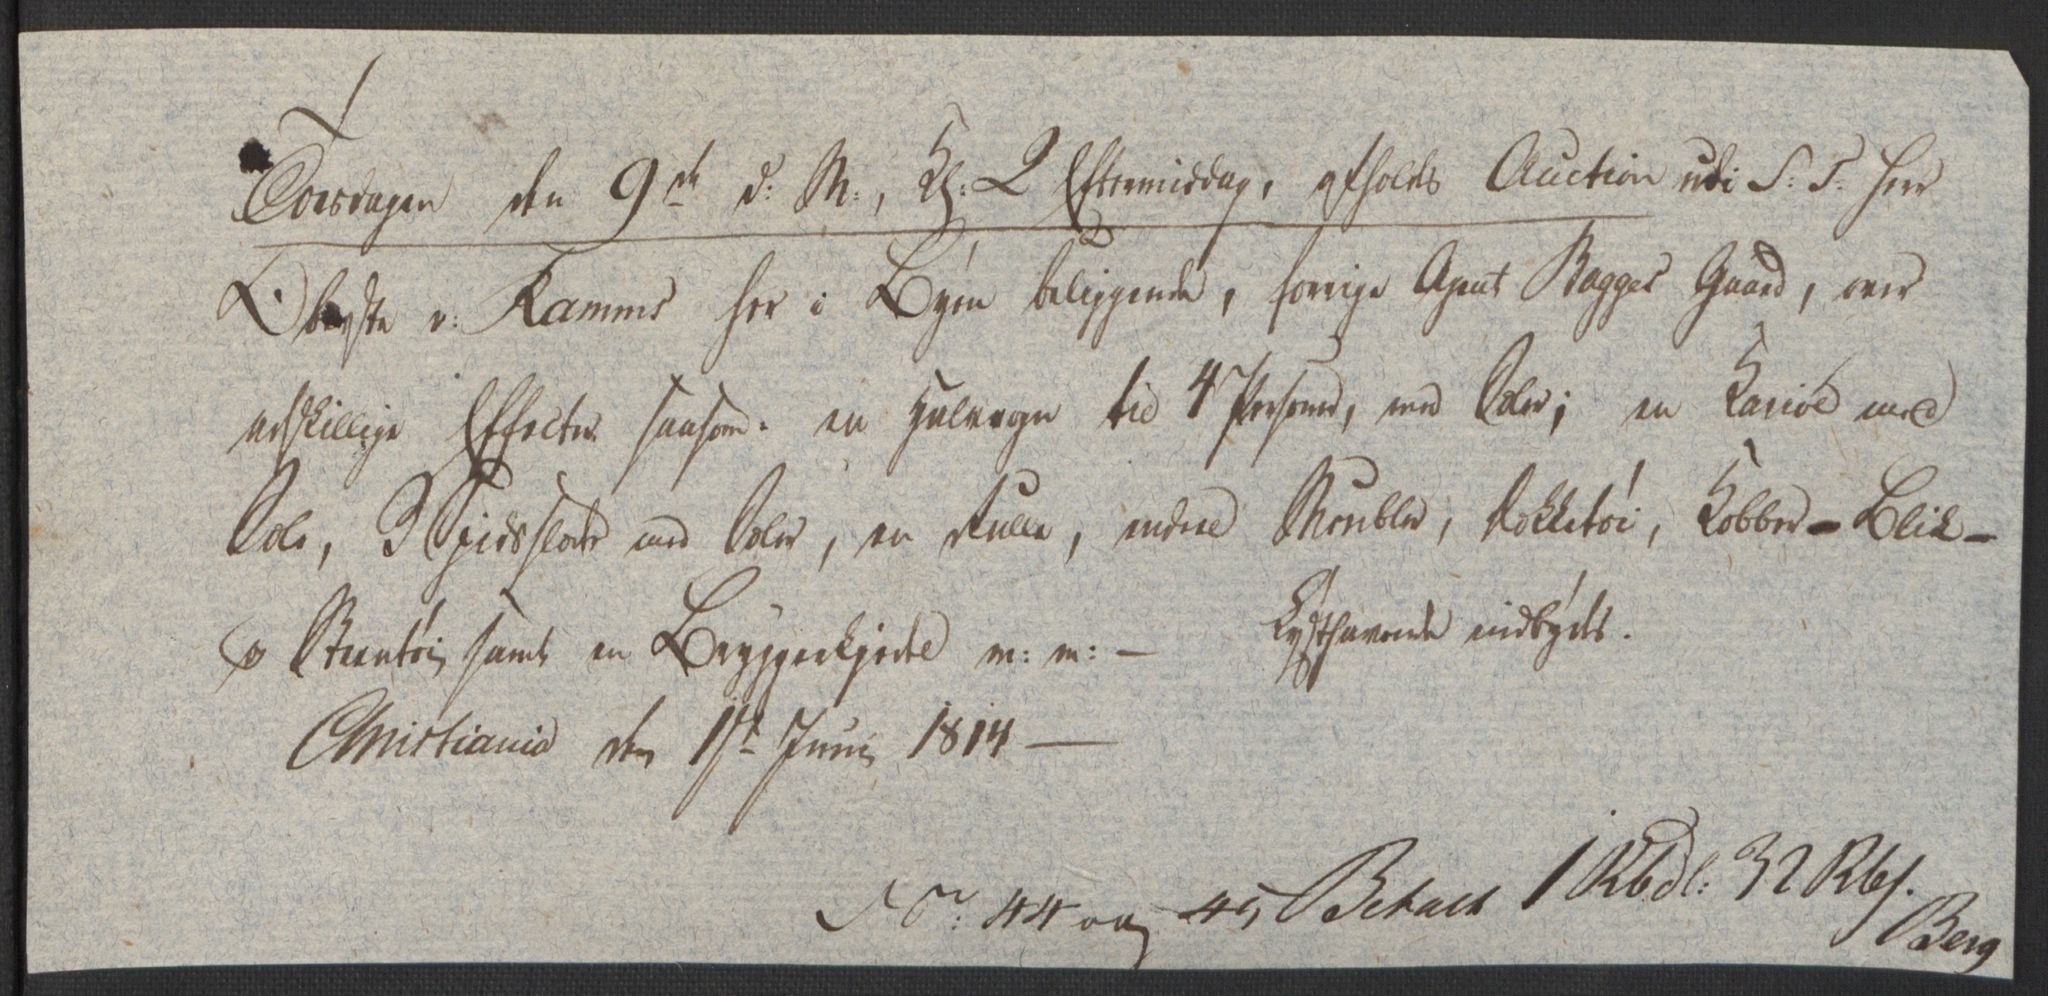 Torsdagen den 9de d: M:, Kl: 2 Eftermiddag, afholdes Auction udi S: T: Herr
Obryste v: Ramms her i Byen beliggende, forrige Agent Bagges Gaard, over
adskillige Effecter saasom: en Hulvogn til 4 Personer, med Seler; en Kariol med
Sele, 3 Spidsslæder med Seler, en Rulle, endeel Meubler, Kokketøi, Kobber- Blik-
og Steentøi samt en Bryggerkjedel m: m: — Lysthavende indbydes.
Christiania den 1ste Junii 1814 —
No: 44 og 45 Betalt 1 Rbdl: 32 Rbs.
Berg